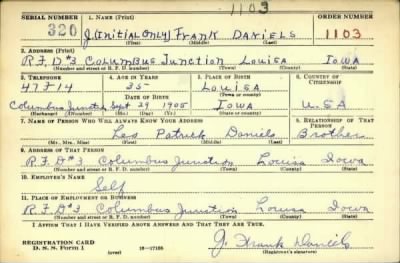 1103
SERIAL NUMBER 1. NAME (Print) ORDER NUMBER
320 J (INITIAL ONLY) FRANK DANIELS 1103
(First) (Middle) (Last)
2. ADDRESS (Print)
R.F.D #3 COLUMBUS JUNCTION LOUISA IOWA
(Number and street or R. F. D. number) (Town) (County) (State)
3. TELEPHONE 4. AGE IN YEARS 5. PLACE OF BIRTH 6. COUNTRY OF CITIZENSHIP
47F14 35 LOUISA
DATE OF BIRTH (Town or county)
Columbus Junction Sept 29 1905 IOWA U.S.A
(Exchange) (Number) (Mo.) (Day) (Yr.) (State or country)
7. NAME OF PERSON WHO WILL ALWAYS KNOW YOUR ADDRESS 8. RELATIONSHIP OF THAT PERSON
Leo Patrick Daniels Brother
(Mr., Mrs., Miss) (First) (Middle) (Last)
9. ADDRESS OF THAT PERSON
R.F.D #3 Columbus Junction Louisa Iowa
(Number and street or R. F. D. number) (Town) (County) (State)
10. EMPLOYER'S NAME
Self
11. PLACE OF EMPLOYMENT OR BUSINESS
R.F.D #3 Columbus Junction Louisa Iowa
(Number and street or R. F. D. number) (Town) (County) (State)
I AFFIRM THAT I HAVE VERIFIED ABOVE ANSWERS AND THAT THEY ARE TRUE.
REGISTRATION CARD
D. S. S. Form 1 16—17105 (over) J. Frank Daniels
(Registrant's signature)